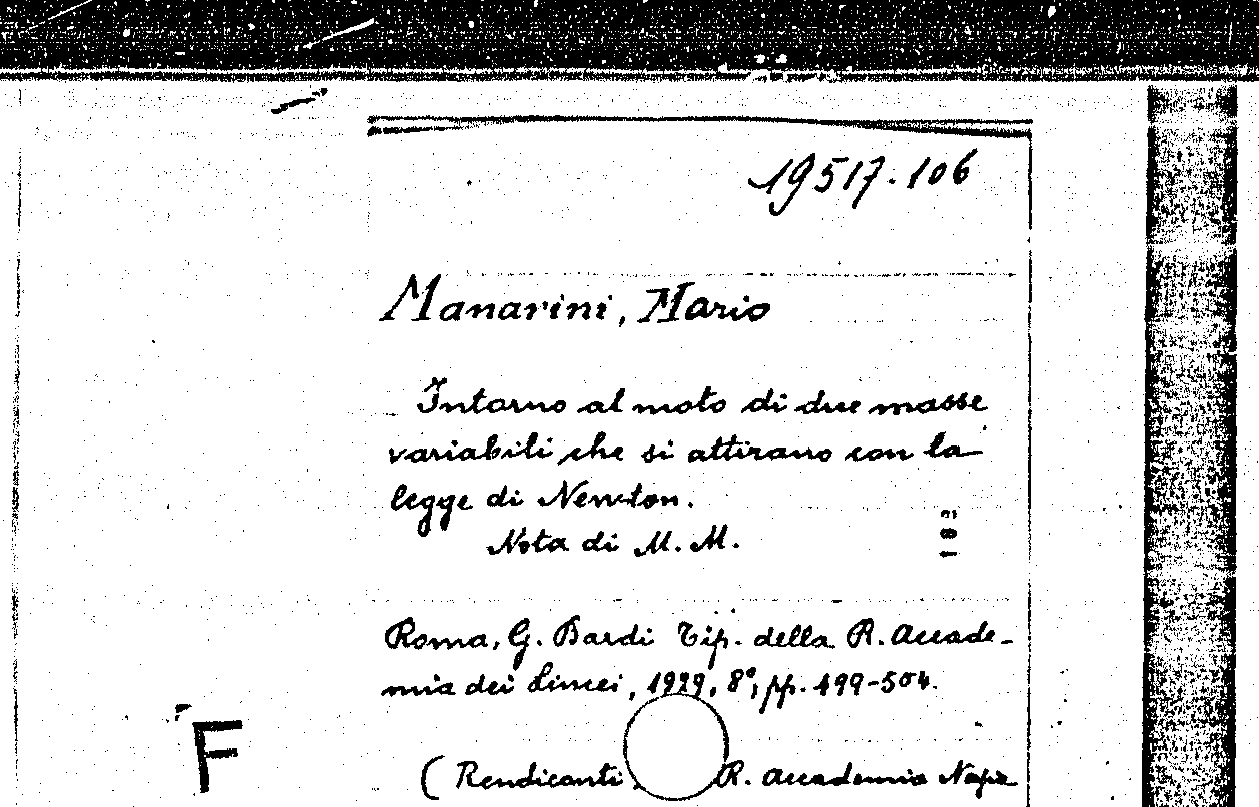 19517.106
Manarini, Mario
Intorno al moto di due masse
variabili, che si attirano con la
legge di Newton.
Nota di M. M.
183
Roma, G. Bardi Tip. della R. Accade-
mia dei Lincei, 1929, 8°, pp. 499-504.
F
( Rendiconti R. Accademia